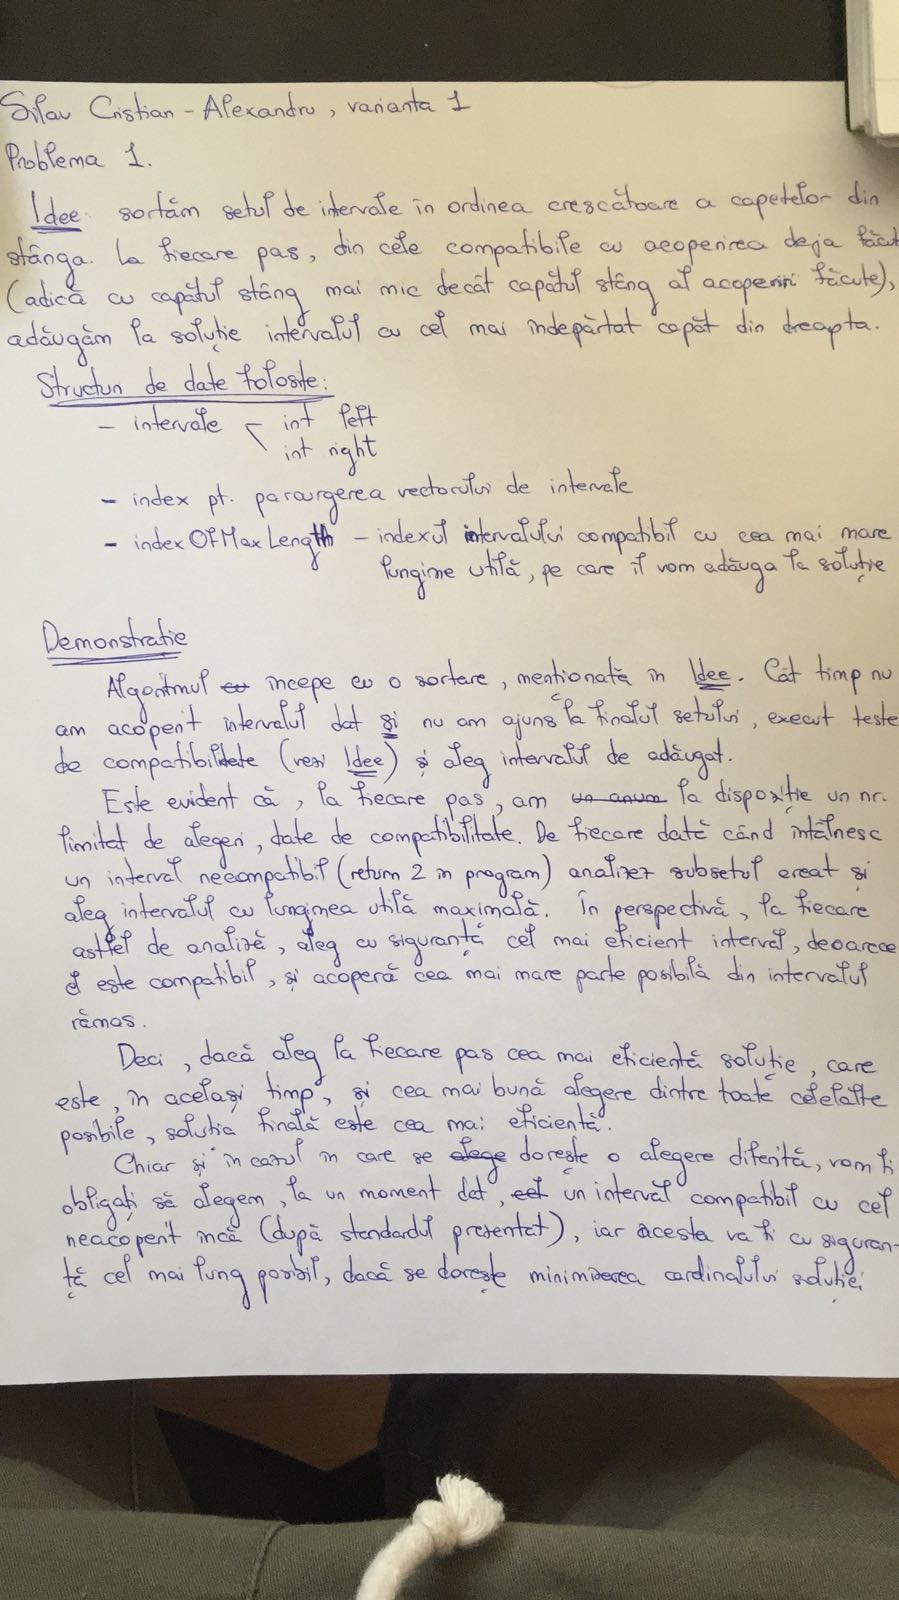 Silav Cristian - Alexandru, varianta 1
Problema 1.
Idee: sortăm setul de intervale în ordinea crescătoare a capetelor din
stânga. La fiecare pas, din cele compatibile cu acoperirea deja făcut
(adică cu capătul stâng mai mic decât capătul stâng al acoperiri făcute),
adăugăm la soluție intervalul cu cel mai îndepărtat capăt din dreapta.
Structuri de date foloste:
- intervale < int left
int right
- index pt. parcurgerea vectorului de intervale
- indexOfMaxLength - indexul intervalului compatibil cu cea mai mare
lungime utilă, pe care îl vom adăuga la soluție
Demonstratie
Algoritmul începe cu o sortare, menționată în Idee. Cât timp nu
am acoperit intervalul dat și nu am ajuns la finalul setului, execut teste
de compatibilitate (vezi Idee) și aleg intervalul de adăugat.
Este evident că, la fiecare pas, am un anum la dispoziție un nr.
limitat de alegeri, date de compatibilitate. De fiecare dată când întâlnesc
un interval necompatibil (return 2 în program) analizez subsetul creat și
aleg intervalul cu lungimea utilă maximală. În perspectivă, la fiecare
astfel de analiză, aleg cu siguranță cel mai eficient interval, deoarece
el este compatibil, și acoperă cea mai mare parte posibilă din intervalul
rămas.
Deci, dacă aleg la fiecare pas cea mai eficientă soluție, care
este, în același timp, și cea mai bună alegere dintre toate celelalte
posibile, solutia finală este cea mai eficientă.
Chiar și în cazul în care se alege dorește o alegere diferită, vom fi
obligați să alegem, la un moment dat, cel un interval compatibil cu cel
neacoperit încă (după standardul prezentat), iar acesta va fi cu siguran-
ță cel mai lung posibil, dacă se dorește minimizarea cardinalului soluției